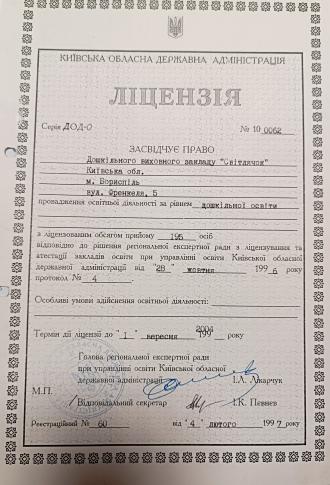 КИЇВСЬКА ОБЛАСНА ДЕРЖАВНА АДМІНІСТРАЦІЯ
ЛІЦЕНЗІЯ
Серія ДОД-О № 10 0062
ЗАСВІДЧУЄ ПРАВО
Дошкільного виховного закладу "Світлячок"
Київська обл.
м. Бориспіль
вул. Френкеля, 5
провадження освітньої діяльності за рівнем дошкільної освіти
з ліцензованим обсягом прийому 195 осіб
відповідно до рішення регіональної експертної ради з ліцензування та
атестації закладів освіти при управлінні освіти Київської обласної
державної адміністрації від "28" жовтня 199 6 року
протокол № 4
Особливі умови здійснення освітньої діяльності:
Термін дії ліцензії до "1" вересня 199 2004 року
Голова регіональної експертної ради
при управлінні освіти Київської обласної
державної адміністрації І.Л. Лікарчук
М.П.
Відповідальний секретар І.К. Певнєв
Реєстраційний № 60 від "4" лютого 199 7 року